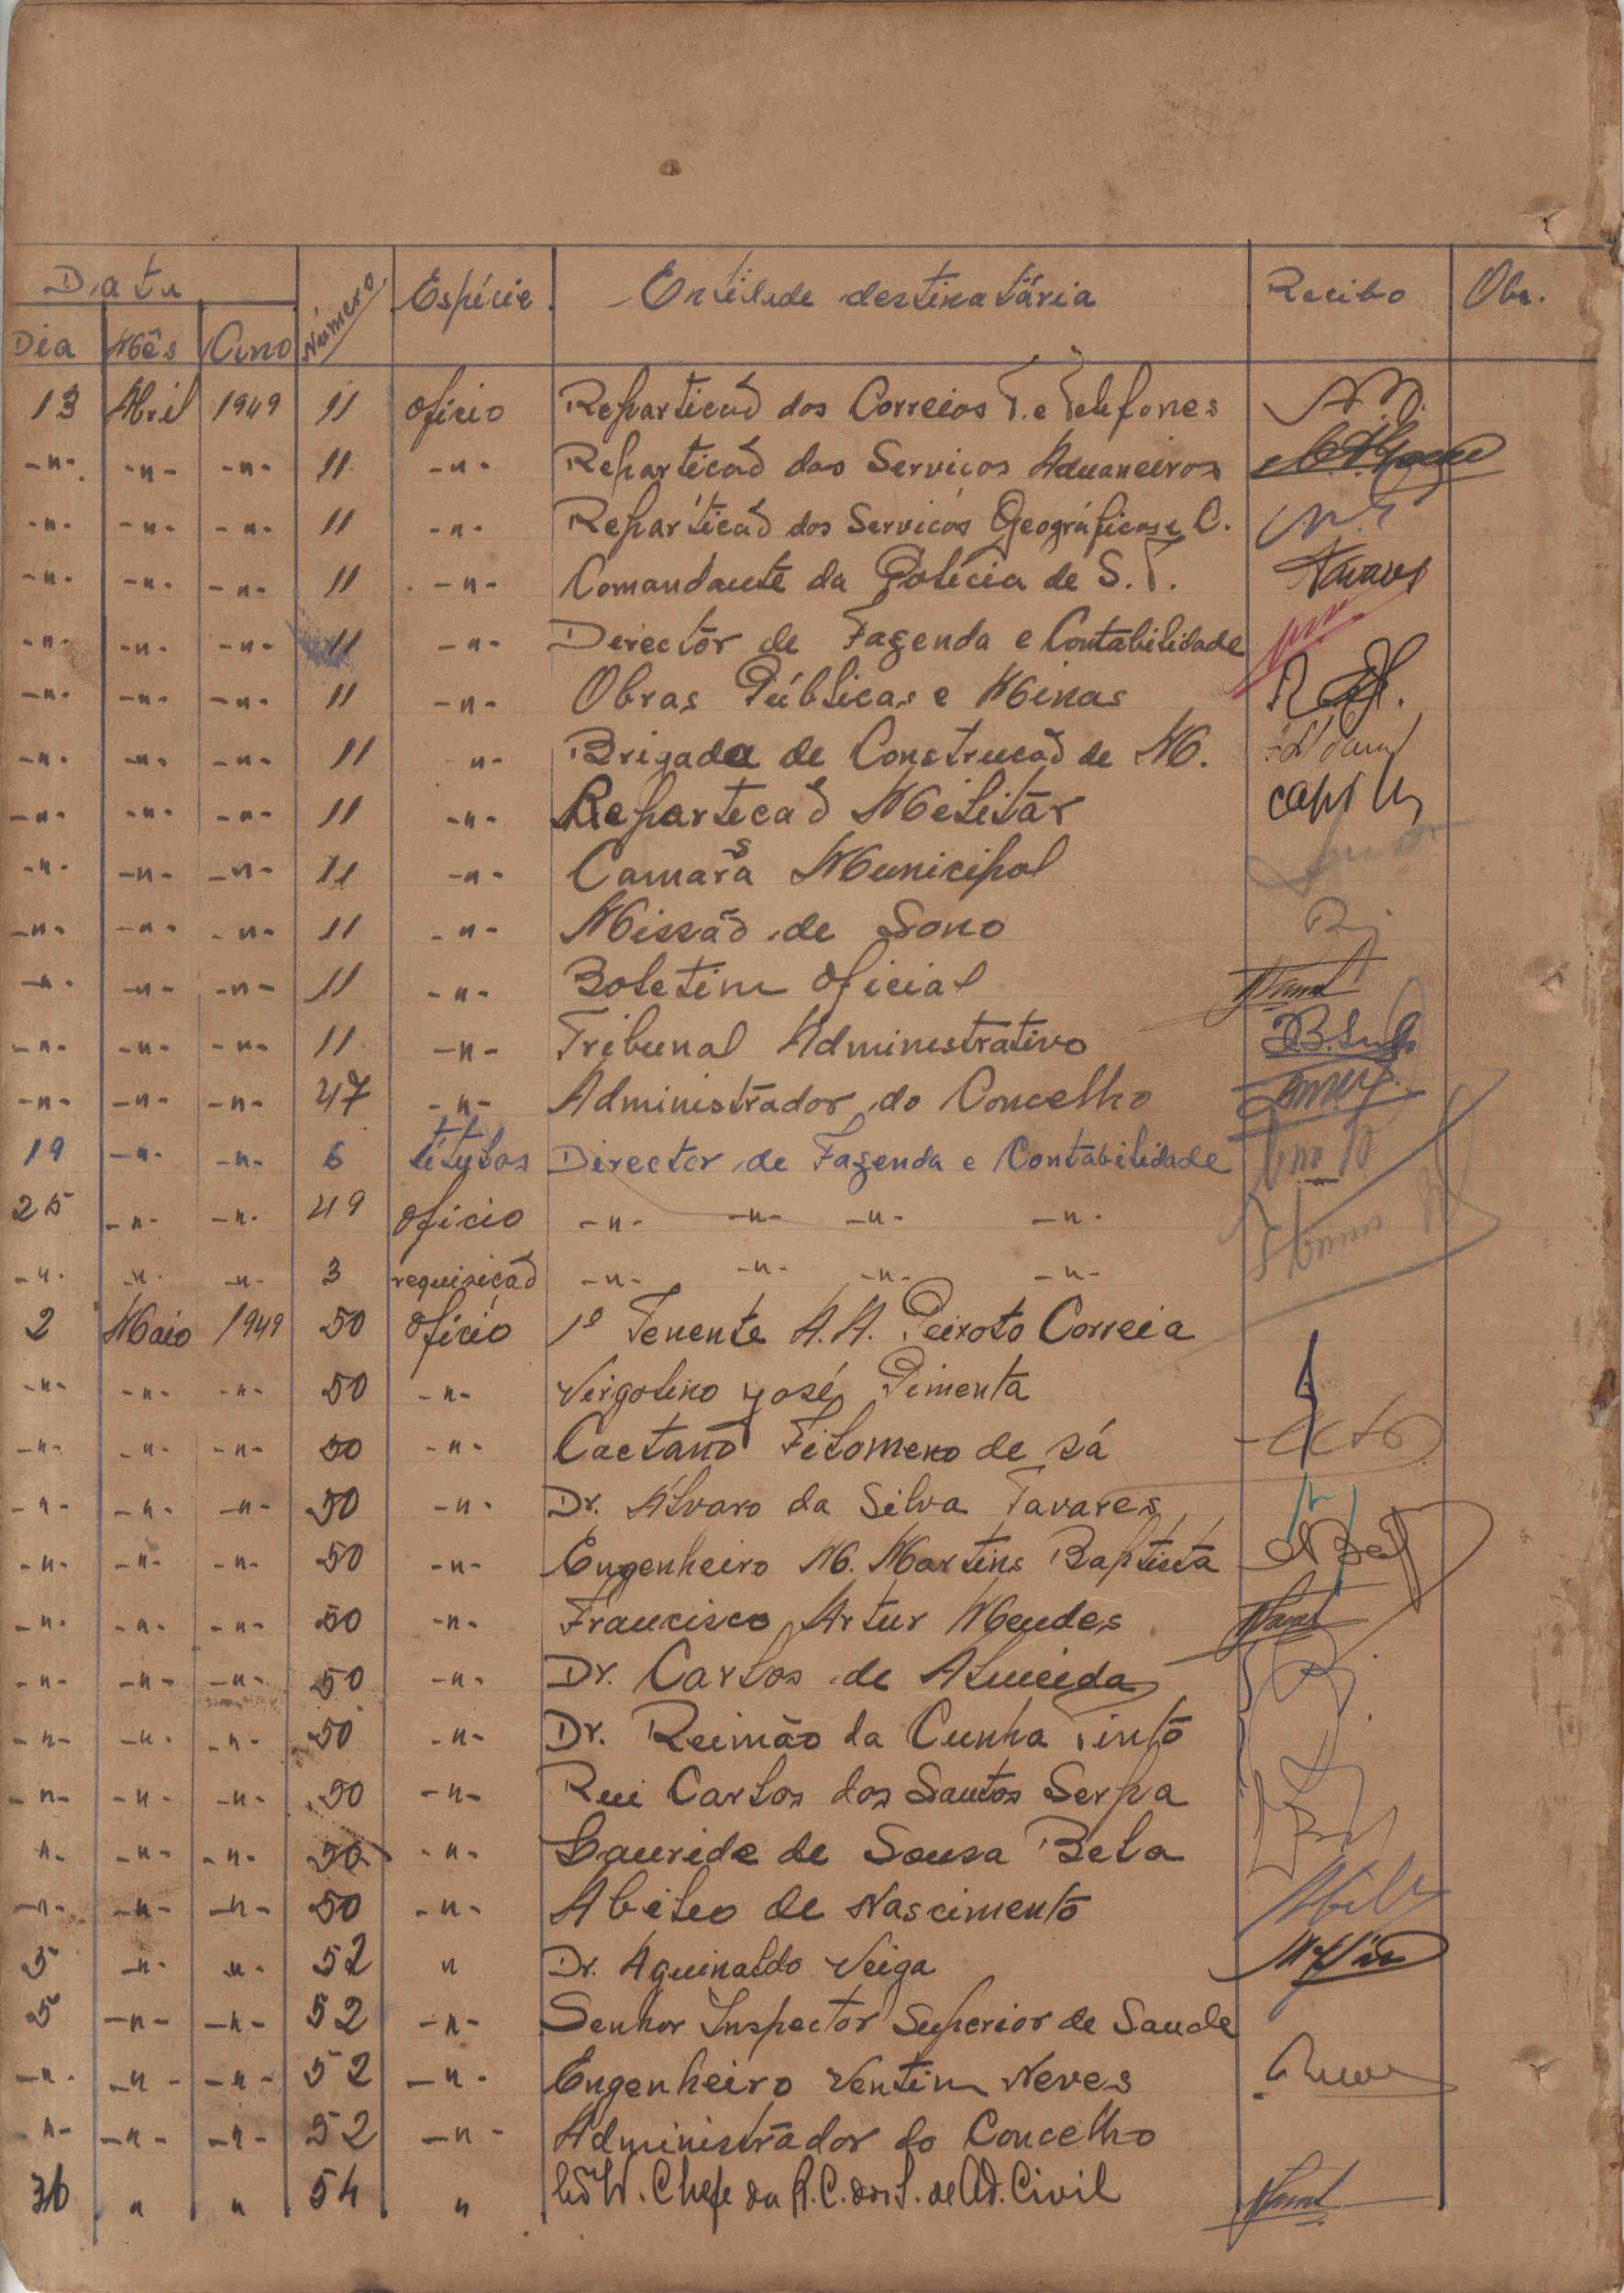 Data Número Espécie Entidade destinatária Recibo Obs.
Dia Mês Ano
13 Abril 1949 11 oficio Reparticão dos Correios T. e Telefones
-"- -"- -"- 11 -"- Reparticão dos Servicos Aduaneiros
-"- -"- -"- 11 -"- Repartição dos Servicos Geográficos e C.
-"- -"- -"- 11 -"- Comandante da Polícia de S.T. Tavares
-"- -"- -"- 11 -"- Director de Fazenda e Contabilidade
-"- -"- -"- 11 -"- Obras Públicas e Minas
-"- -"- -"- 11 "- Brigada de Construcão de M.
-"- -"- -"- 11 -"- Reparticão Militar
-"- -"- -"- 11 -"- Camara Municipal
-"- -"- -"- 11 -"- Missão de Sono
-"- -"- -"- 11 -"- Boletim oficial
-"- -"- -"- 11 -"- Tribunal Administrativo
-"- -"- -"- 47 -"- Administrador do Concelho
19 -"- -"- 6 títulos Director de Fazenda e Contabilidade
25 -"- -"- 49 oficio -"- -"- -"- -"-
-"- -"- -"- 3 requisicão -"- -"- -"- -"-
2 Maio 1949 50 oficio 1º Tenente A.A. Peixoto Correia
-"- -"- -"- 50 -"- Virgolino José Pimenta
-"- -"- -"- 50 -"- Caetano Filomeno de Sá
-"- -"- -"- 50 -"- Dr. Álvaro da Silva Tavares
-"- -"- -"- 50 -"- Engenheiro M. Martins Baptista
-"- -"- -"- 50 -"- Francisco Artur Mendes
-"- -"- -"- 50 -"- Dr. Carlos de Almeida
-"- -"- -"- 50 -"- Dr. Reimão da Cunha Pinto
-"- -"- -"- 50 -"- Rui Carlos dos Santos Serpa
"- -"- -"- 50 -"- Lauride de Sousa Bela
-"- -"- -"- 50 -"- Abilio de Nascimento
5 -"- "- 52 " Dr. Aguinaldo Veiga
5 -"- -"- 52 -"- Senhor Inspector Superior de Saude
-"- -"- -"- 52 -"- Engenheiro Ventim Neves
-"- -"- -"- 52 -"- Administrador do Concelho
" " 54 " Chefe da R.C. dos S. de Ad. Civil